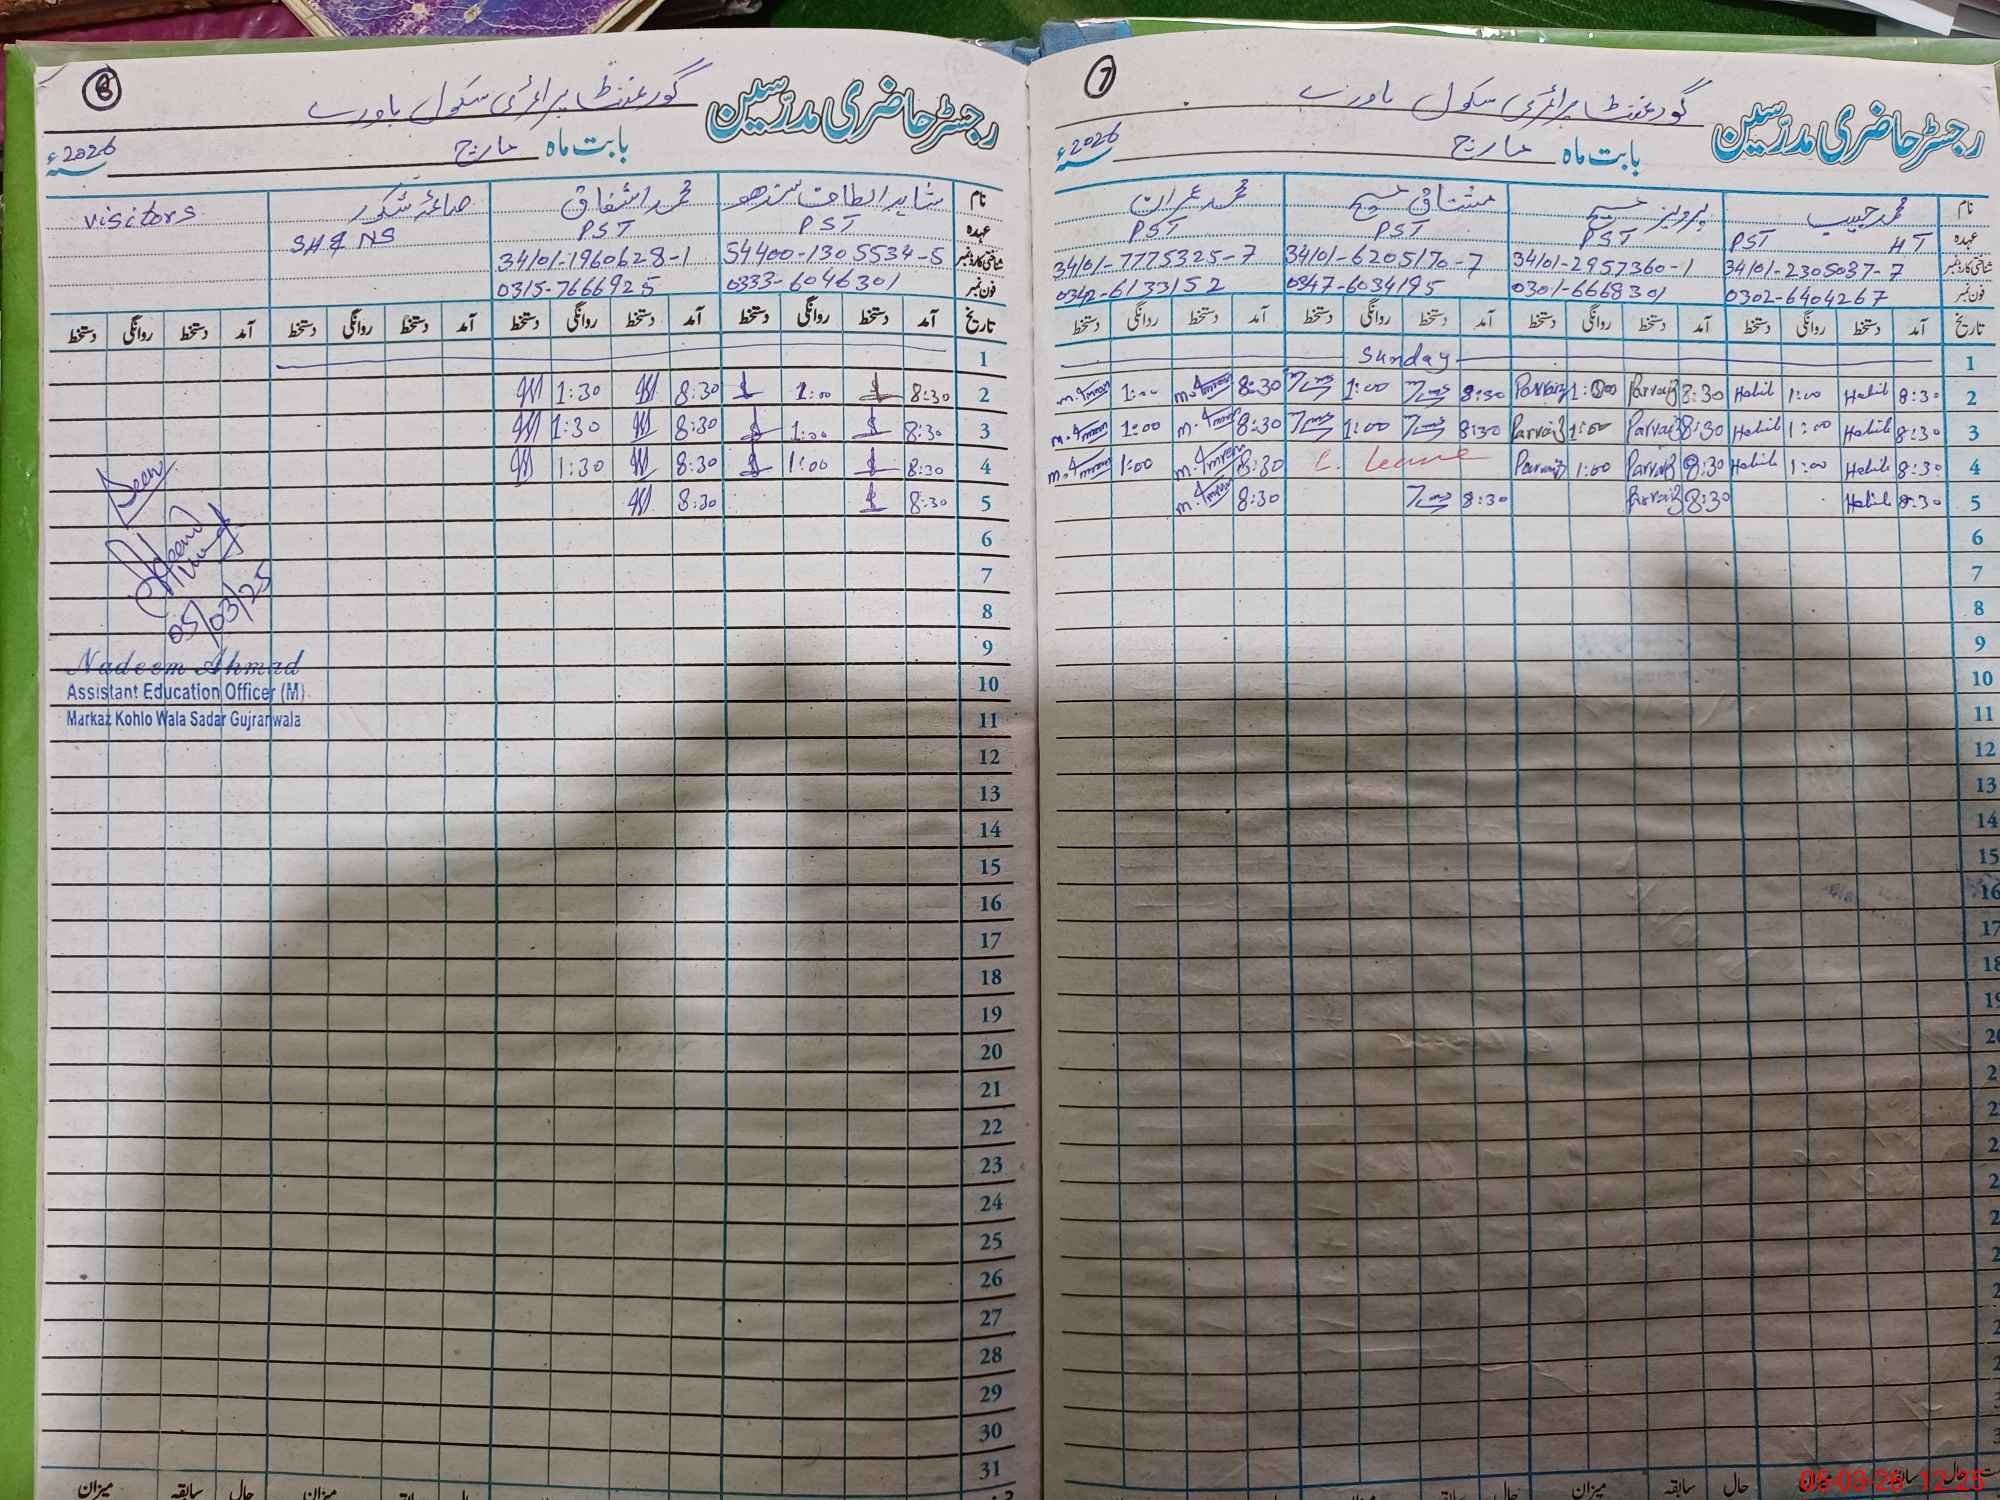 6
رجسٹر حاضری مدرسین گورنمنٹ پرائمری سکول باورے
بابت ماہ مارچ 2026ء
نام شاہد الطاف سندھو محمد اشفاق صائمہ شکور visitors
عہدہ PST PST SH & NS
شناختی کارڈ نمبر 54400-1305534-5 34101-1960628-1
فون نمبر 0333-6046301 0315-7666925
تاریخ آمد دستخط روانگی دستخط آمد دستخط روانگی دستخط آمد دستخط روانگی دستخط آمد دستخط روانگی دستخط
1
2 8:30 1:00 8:30 1:30
3 8:30 1:00 8:30 1:30
4 8:30 1:00 8:30 1:30
5 8:30 8:30
6
7
8
9
10
11
12
13
14
15
16
17
18
19
20
21
22
23
24
25
26
27
28
29
30
31
Seen
05/03/25
Nadeem Ahmad
Assistant Education Officer (M)
Markaz Kohlo Wala Sadar Gujranwala
حال سابقہ میزان
7
رجسٹر حاضری مدرسین گورنمنٹ پرائمری سکول باورے
بابت ماہ مارچ 2026ء
نام محمد حبیب پرویز مسیح مشتاق مسیح محمد عمران
عہدہ HT PST PST PST PST
شناختی کارڈ نمبر 34101-2305037-7 34101-2957360-1 34101-6205170-7 34101-7775325-7
فون نمبر 0302-6404267 0301-6668301 0347-6034195 0342-6133152
تاریخ آمد دستخط روانگی دستخط آمد دستخط روانگی دستخط آمد دستخط روانگی دستخط آمد دستخط روانگی دستخط
1 Sunday
2 8:30 Habib 1:00 Habib 8:30 Parvaiz 1:00 Parvaiz 8:30 1:00 8:30 M. Imran 1:00 M. Imran
3 8:30 Habib 1:00 Habib 8:30 Parvaiz 1:00 Parvaiz 8:30 1:00 8:30 M. Imran 1:00 M. Imran
4 8:30 Habib 1:00 Habib 8:30 Parvaiz 1:00 Parvaiz C. Leave 8:30 M. Imran 1:00 M. Imran
5 8:30 Habib 8:30 Parvaiz 8:30 8:30 M. Imran
6
7
8
9
10
11
12
13
14
15
16
17
18
حال سابقہ میزان
05-03-26 12:25